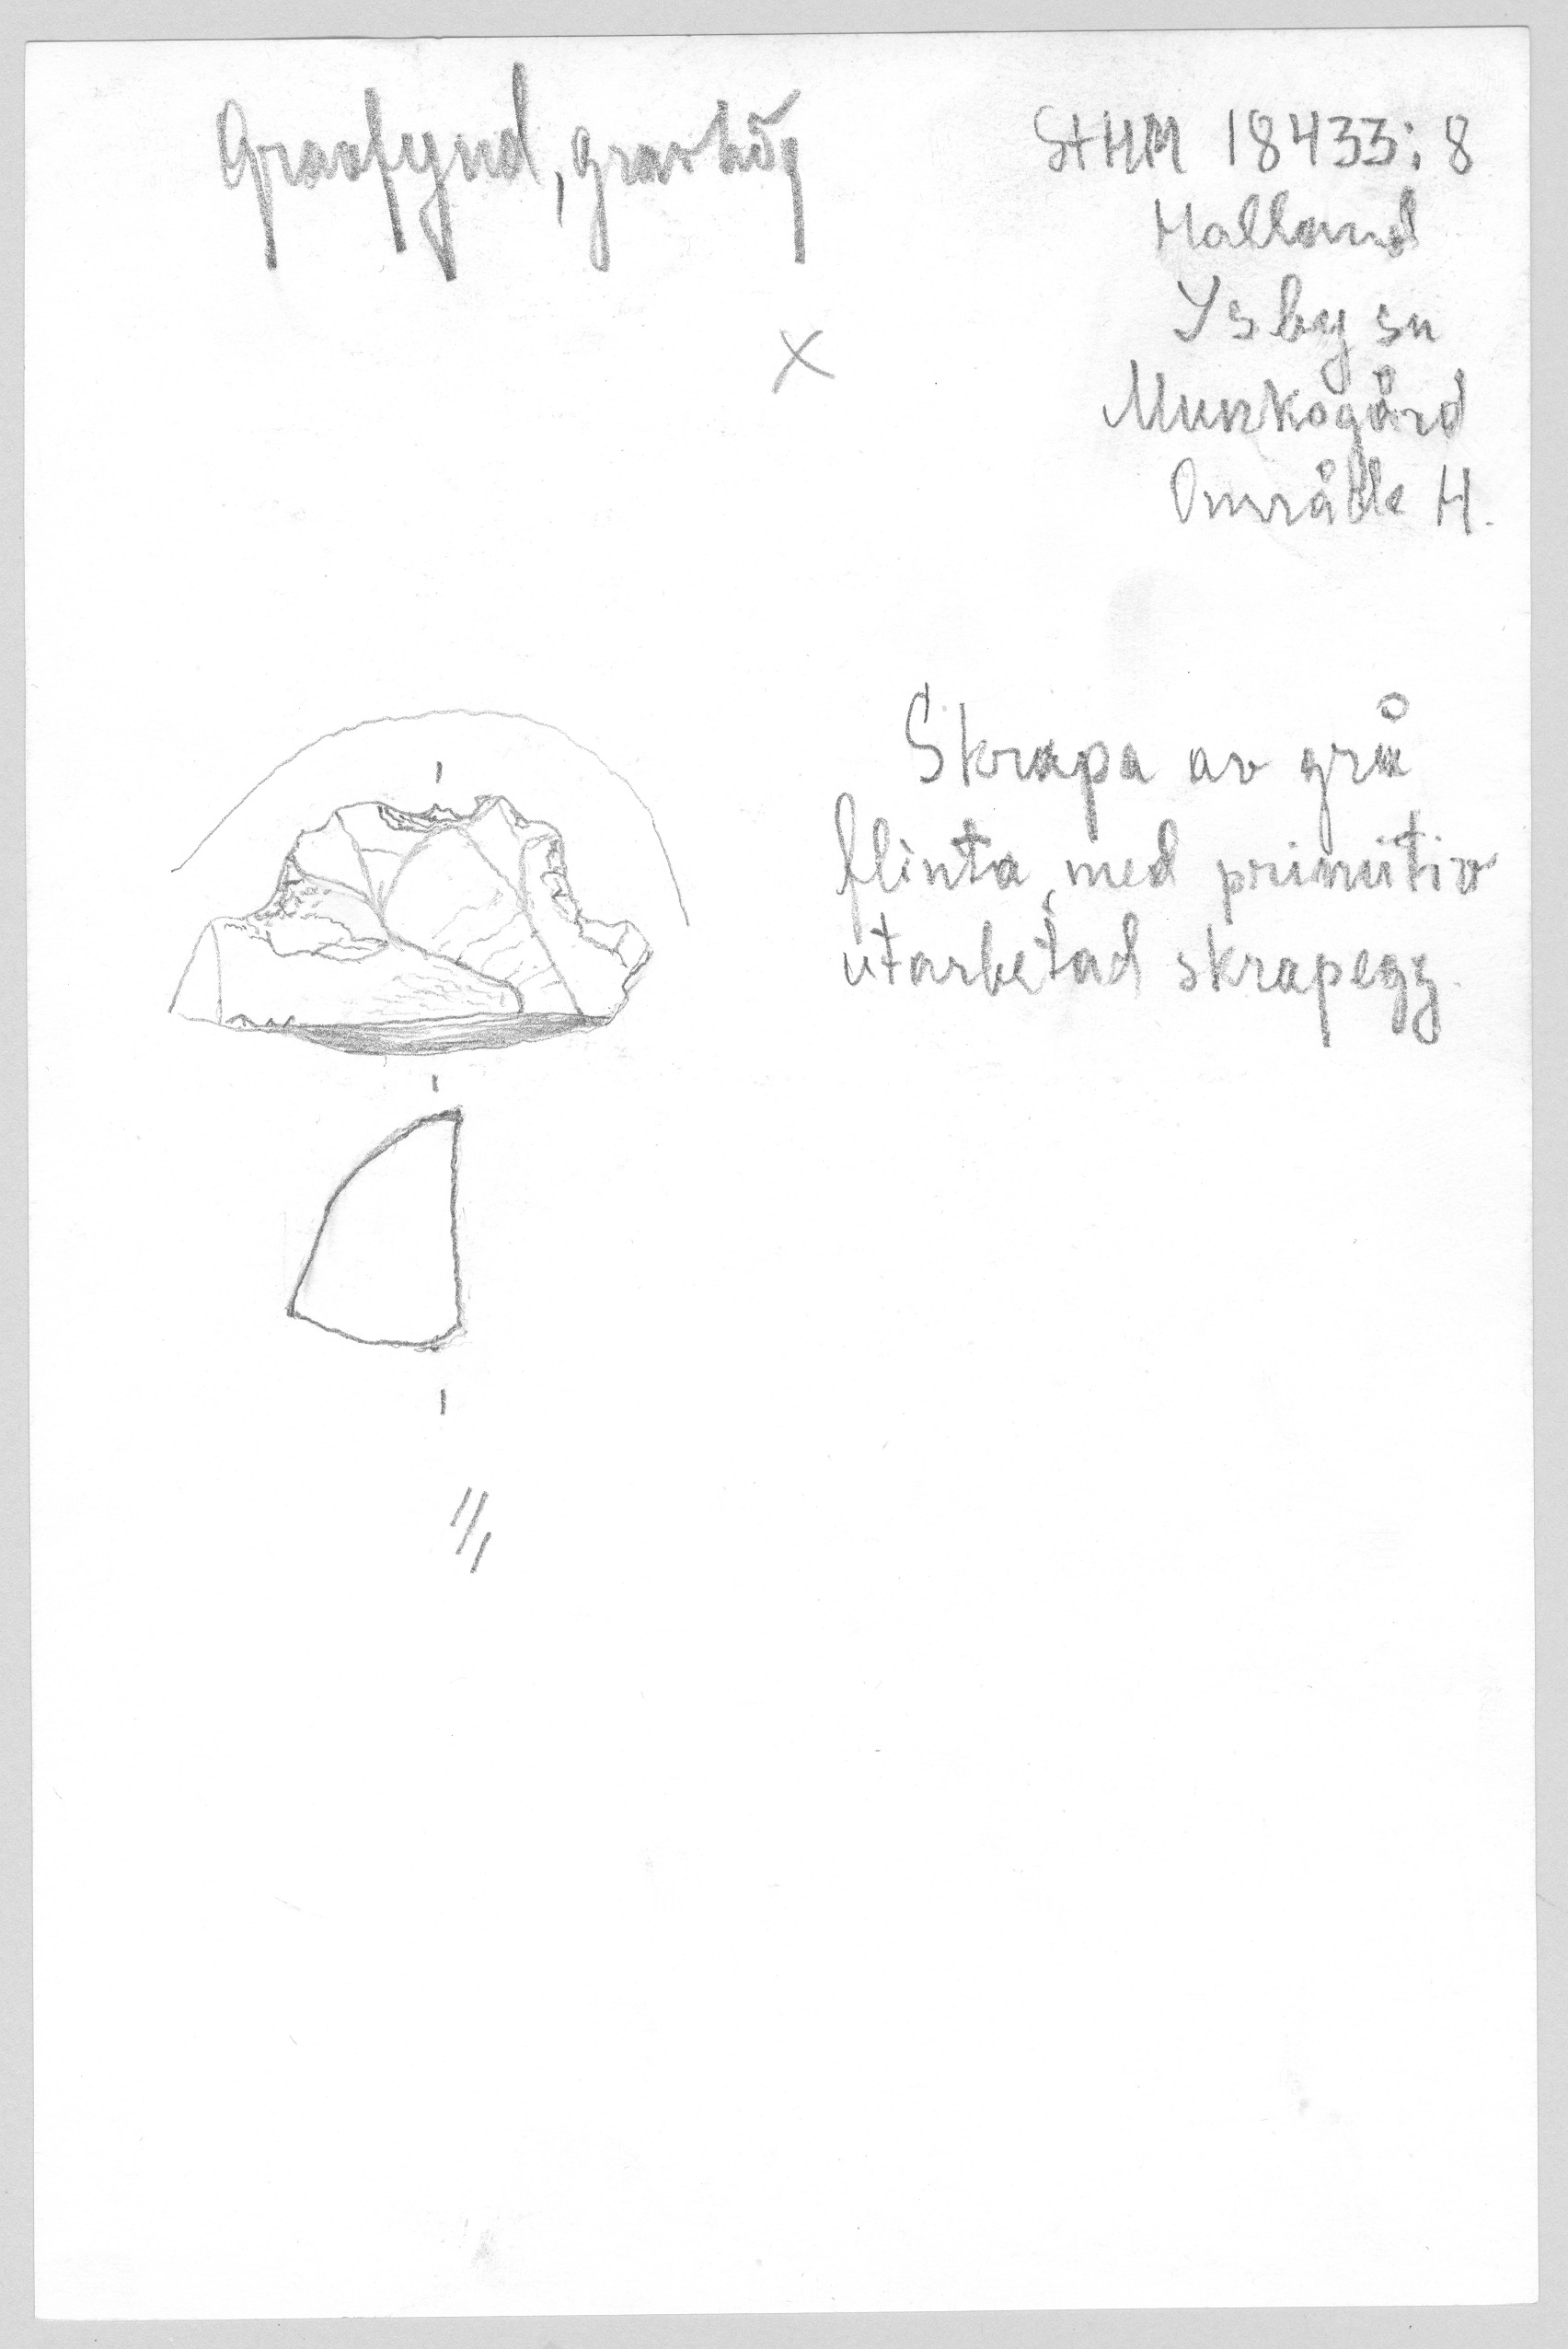 Gravfynd, gravhög
StHM 18433:8
Halland
Ysby sn
Munkagård
Område H.
X
Skrapa av grå
flinta, med primitiv
utarbetad skrapegg.
1/1